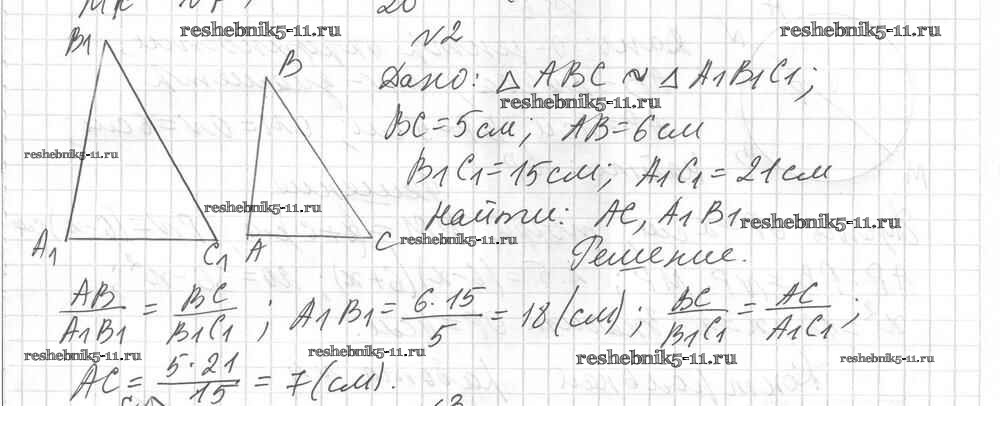 reshebnik5-11.ru reshebnik5-11.ru
№2
B1 B Дано: △ ABC ~ △ A1B1C1;
reshebnik5-11.ru
BC = 5 см; AB = 6 см
reshebnik5-11.ru
B1C1 = 15 см; A1C1 = 21 см
reshebnik5-11.ru
Найти: AC, A1B1 reshebnik5-11.ru
A1 C1 A C reshebnik5-11.ru
Решение.
AB/A1B1 = BC/B1C1; A1B1 = 6·15/5 = 18 (см); BC/B1C1 = AC/A1C1;
reshebnik5-11.ru reshebnik5-11.ru reshebnik5-11.ru reshebnik5-11.ru
AC = 5·21/15 = 7 (см).